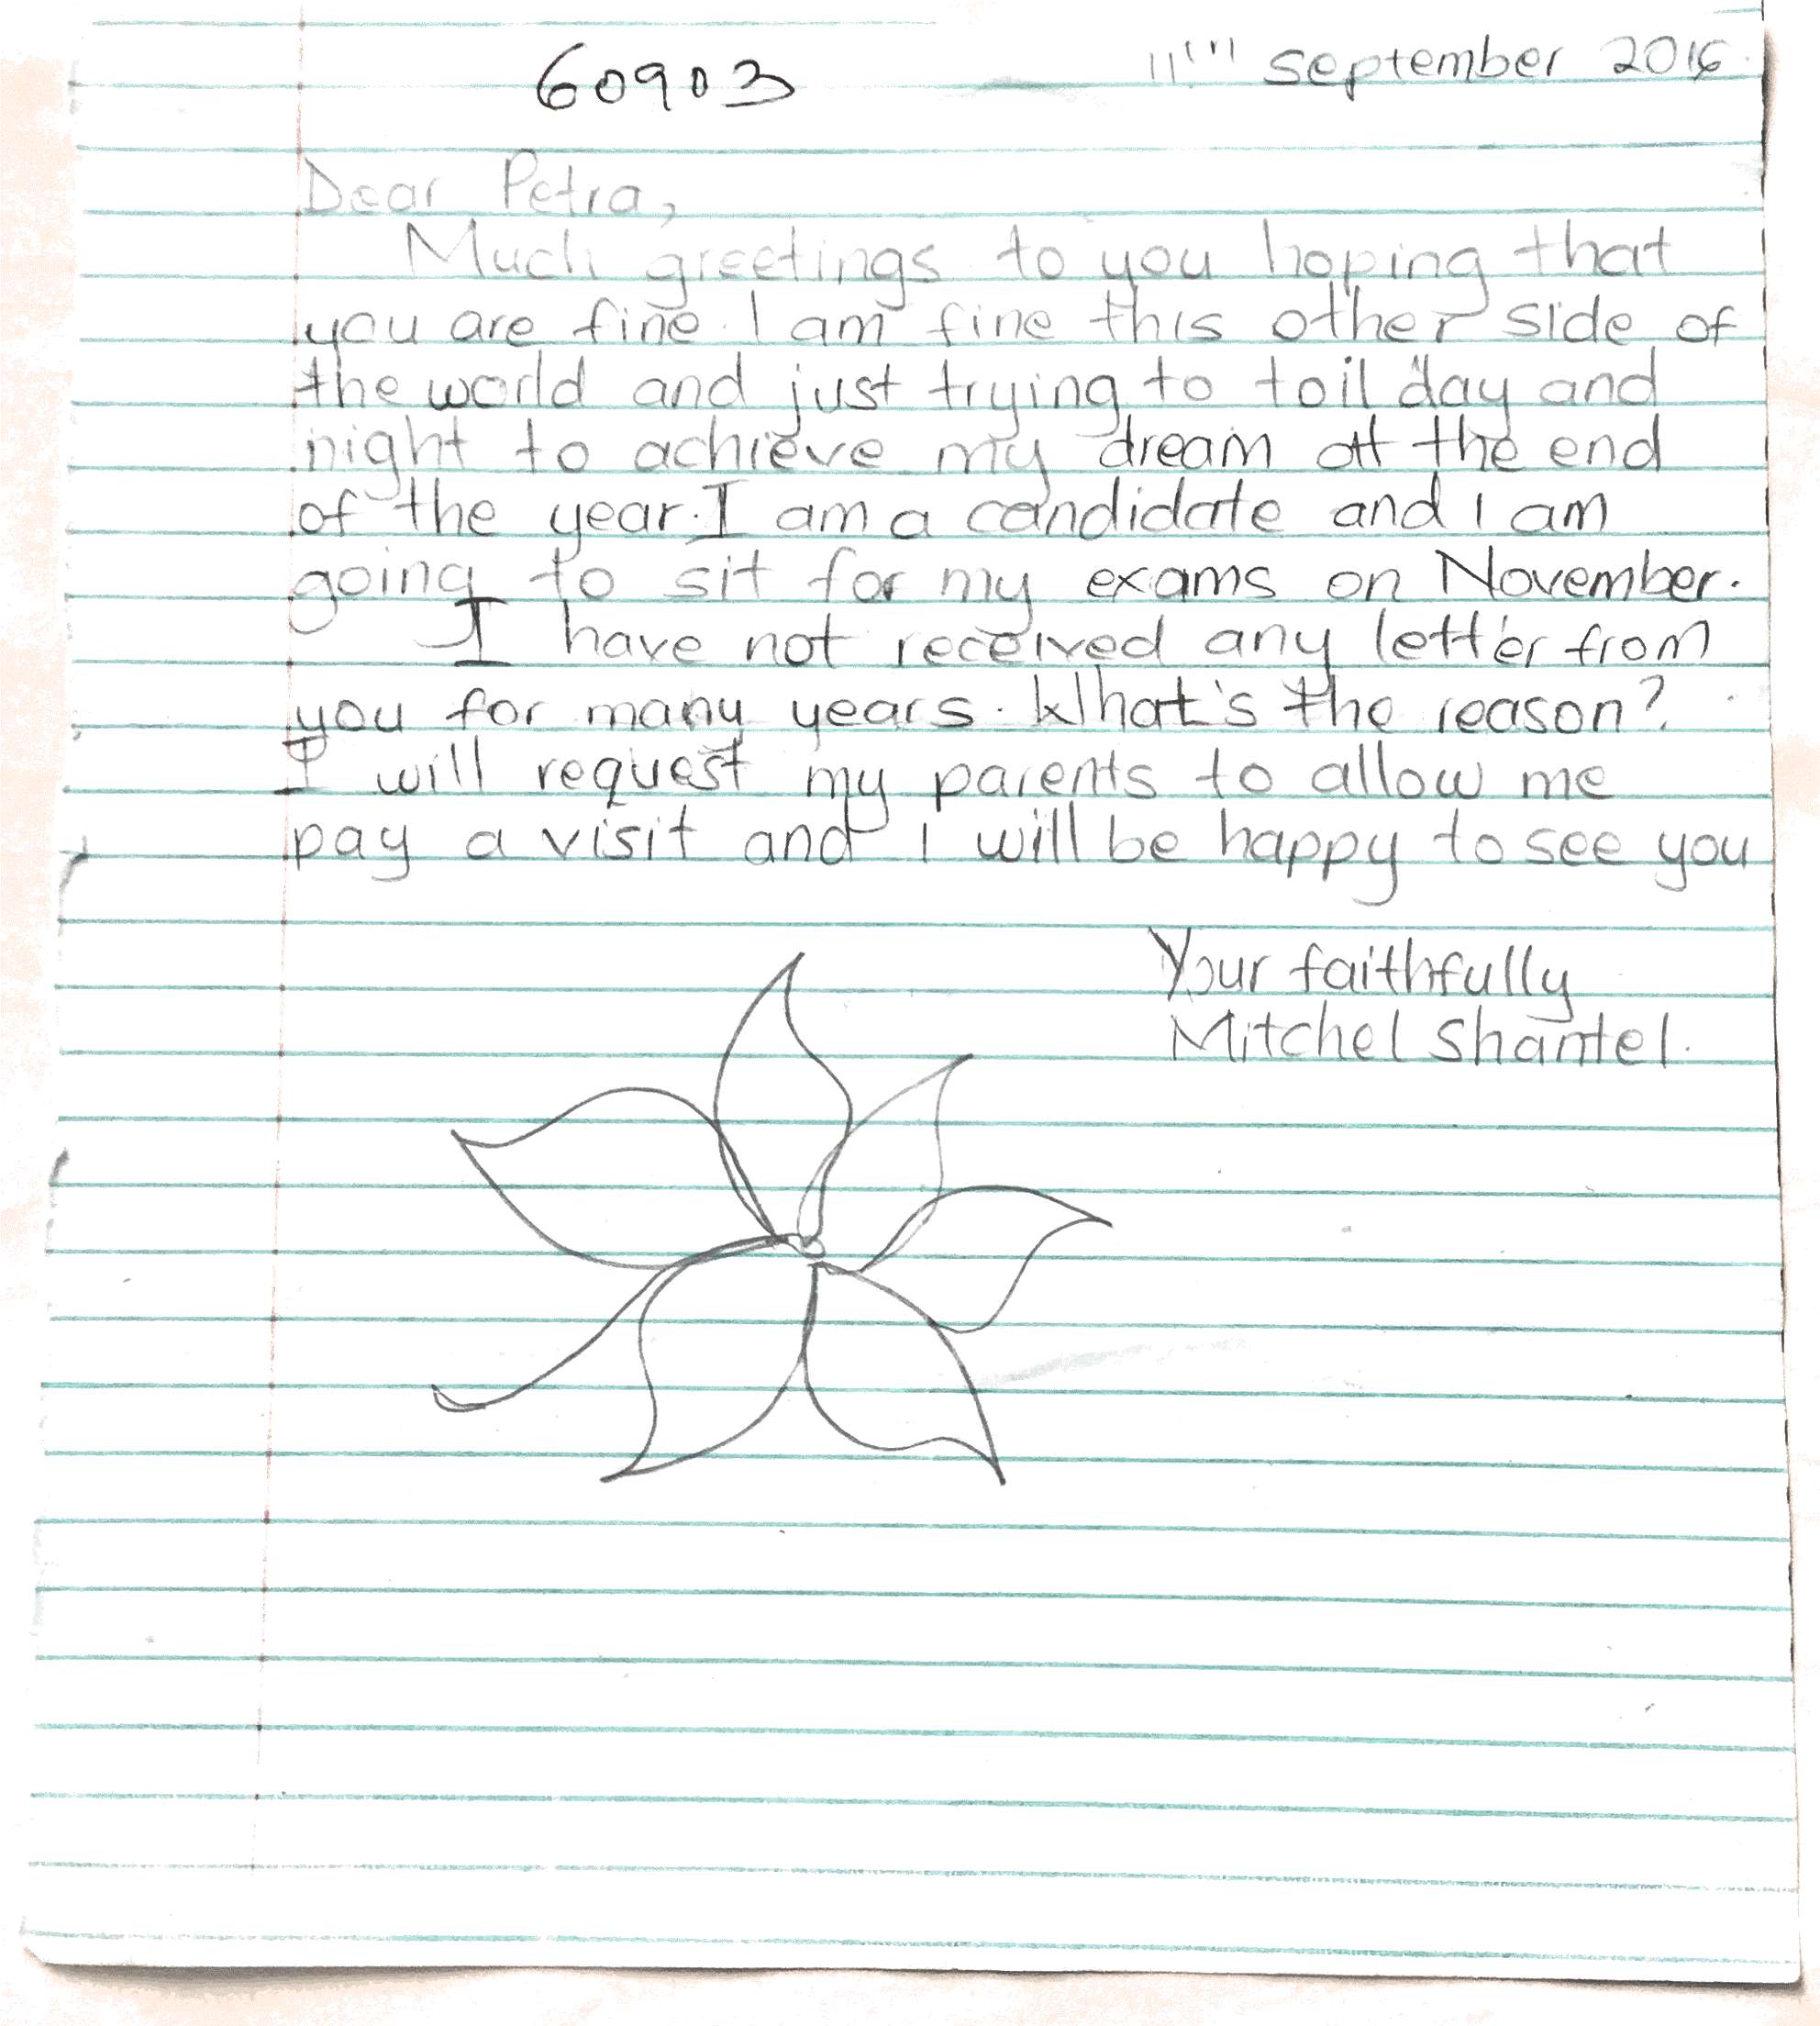 60903
11th September 2016
Dear Petra,
Much greetings to you hoping that
you are fine. I am fine this other side of
the world and just trying to toil day and
night to achieve my dream at the end
of the year. I am a candidate and I am
going to sit for my exams on November.
I have not received any letter from
you for many years. What's the reason?
I will request my parents to allow me
pay a visit and I will be happy to see you
Your faithfully
Mitchel Shantel.